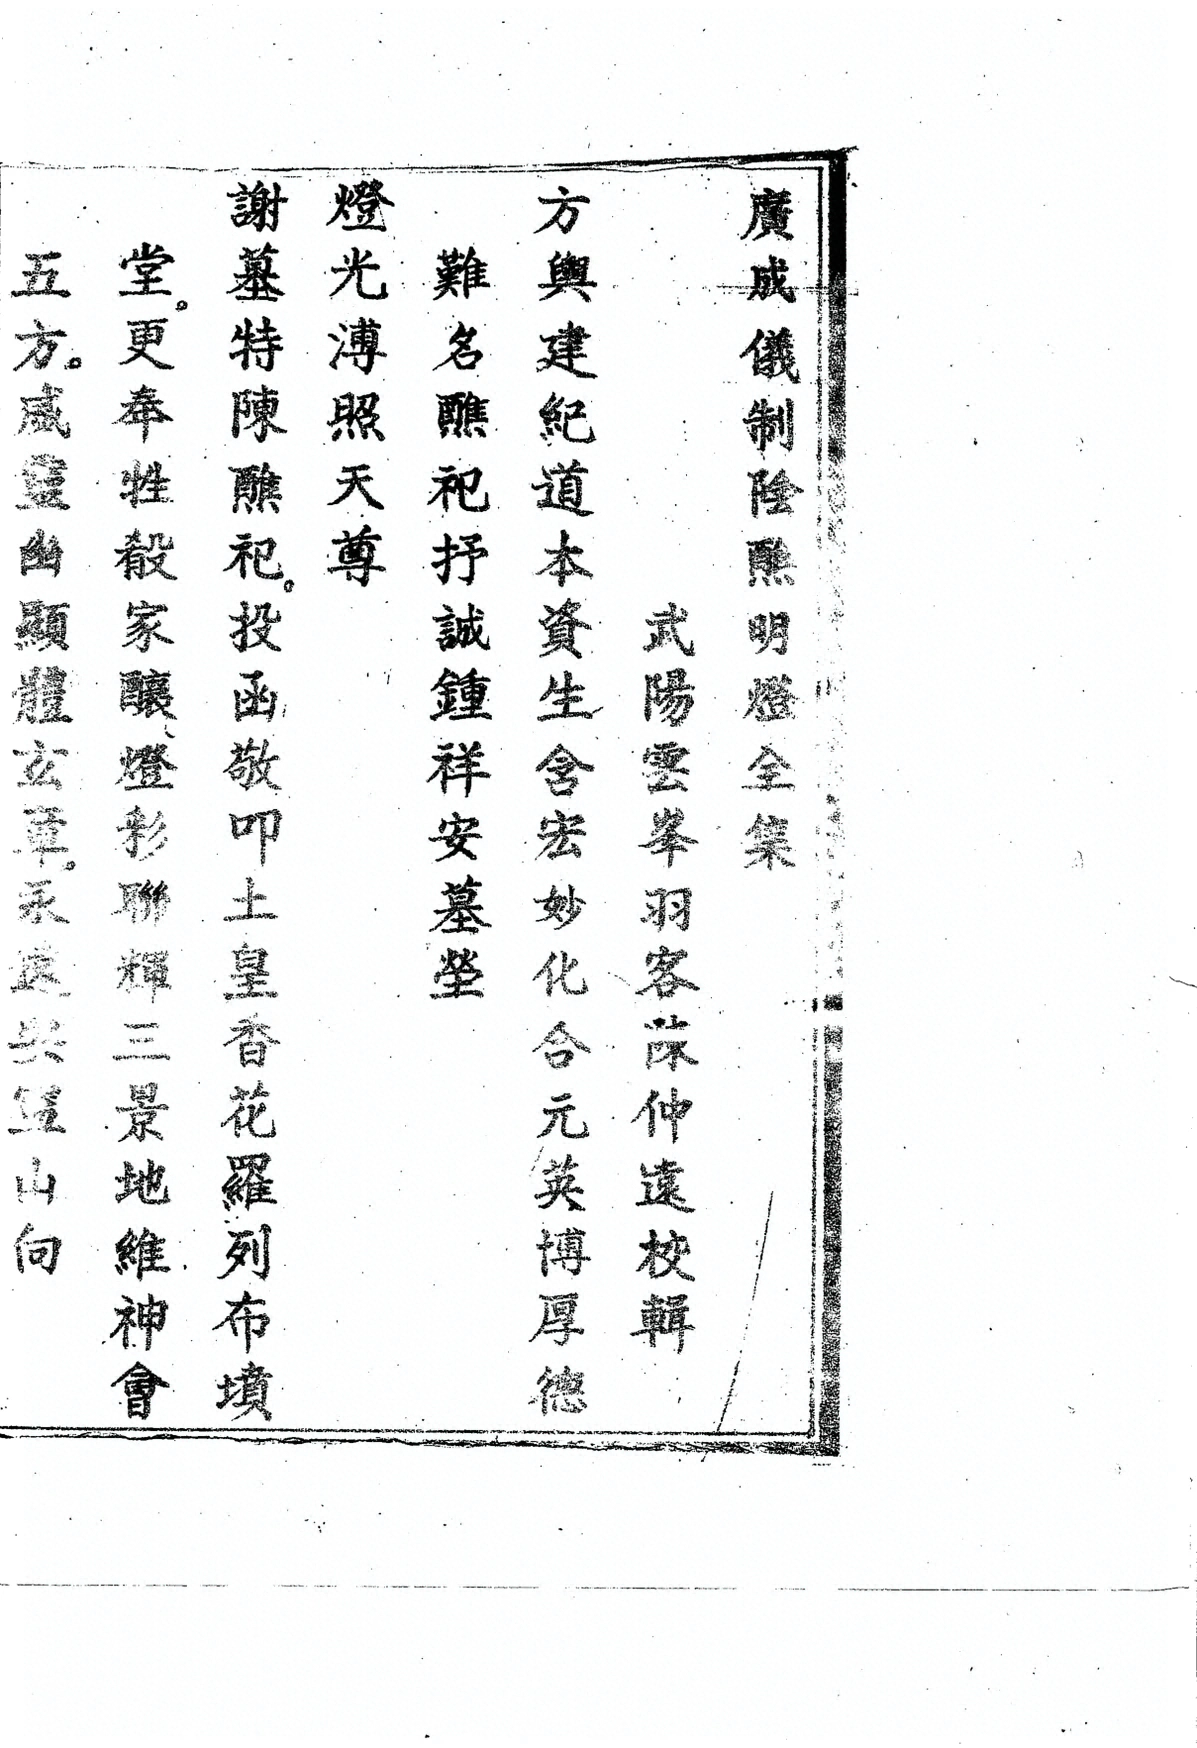 廣成儀制陰醮明燈全集
武陽雲峯羽客陳仲遠校輯
方輿建紀道本資生含宏妙化合元英博厚德
難名醮祀抒誠鍾祥安墓塋
燈光溥照天尊
謝墓特陳醮祀。投函敬叩土皇香花羅列布墳
堂。更奉牲殽家釀燈彩聯輝三景地維神會
五方。咸靈幽顯體玄章。永遠興 山向